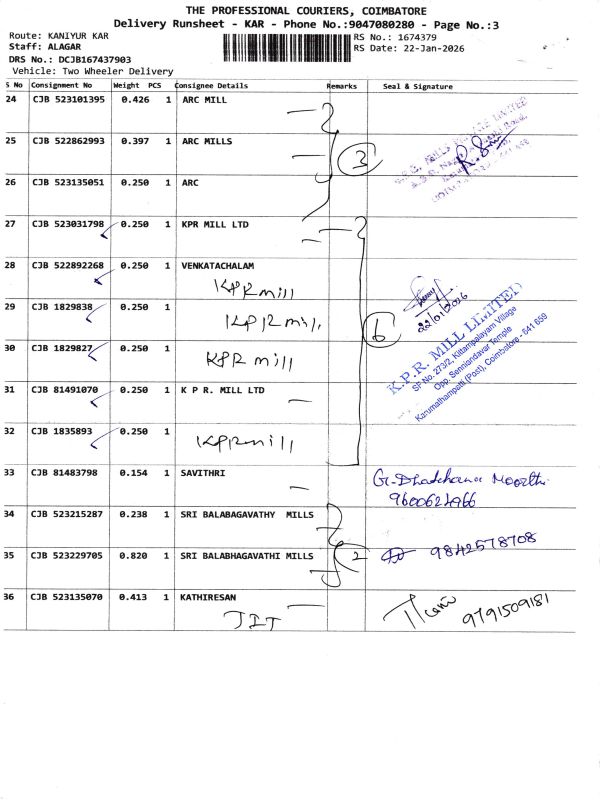 THE PROFESSIONAL COURIERS, COIMBATORE
Delivery Runsheet - KAR - Phone No.:9047080280 - Page No.:3
Route: KANIYUR KAR
Staff: ALAGAR
DRS No.: DCJB167437903
Vehicle: Two Wheeler Delivery
RS No.: 1674379
RS Date: 22-Jan-2026
S No Consignment No Weight PCS Consignee Details Remarks Seal & Signature
24 CJB 523101395 0.426 1 ARC MILL
25 CJB 522862993 0.397 1 ARC MILLS
3
26 CJB 523135051 0.250 1 ARC
27 CJB 523031798 0.250 1 KPR MILL LTD
28 CJB 522892268 0.250 1 VENKATACHALAM
KPR mill
22/01/2026
29 CJB 1829838 0.250 1
KPR mill
6
K.P.R. MILL LIMITED
SF No. 273/2, Kittampalayam Village
Opp. Senniandavar Temple
Karumathampatti (Post), Coimbatore - 641 659
30 CJB 1829827 0.250 1
KPR mill
31 CJB 81491070 0.250 1 K P R. MILL LTD
32 CJB 1835893 0.250 1
KPR mill
33 CJB 81483798 0.154 1 SAVITHRI
9600624966
34 CJB 523215287 0.238 1 SRI BALABAGAVATHY MILLS
35 CJB 523229705 0.820 1 SRI BALABHAGAVATHI MILLS
2
9842578708
36 CJB 523135070 0.413 1 KATHIRESAN
JIT
9791509181